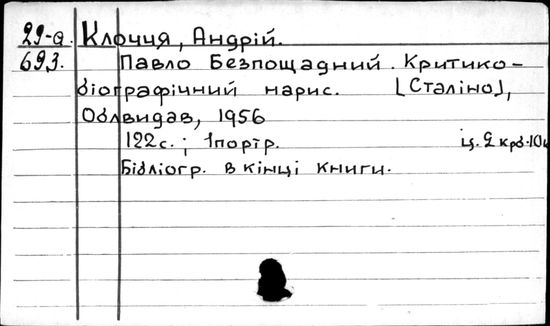 29-а Клоччя, Андрій.
693. Павло Безпощадний. Критико-
біографічний нарис. [Сталіно],
Облвидав, 1956
122с.; 1портр. ц. 2 крб. 10к
Бібліогр. в кінці книги.